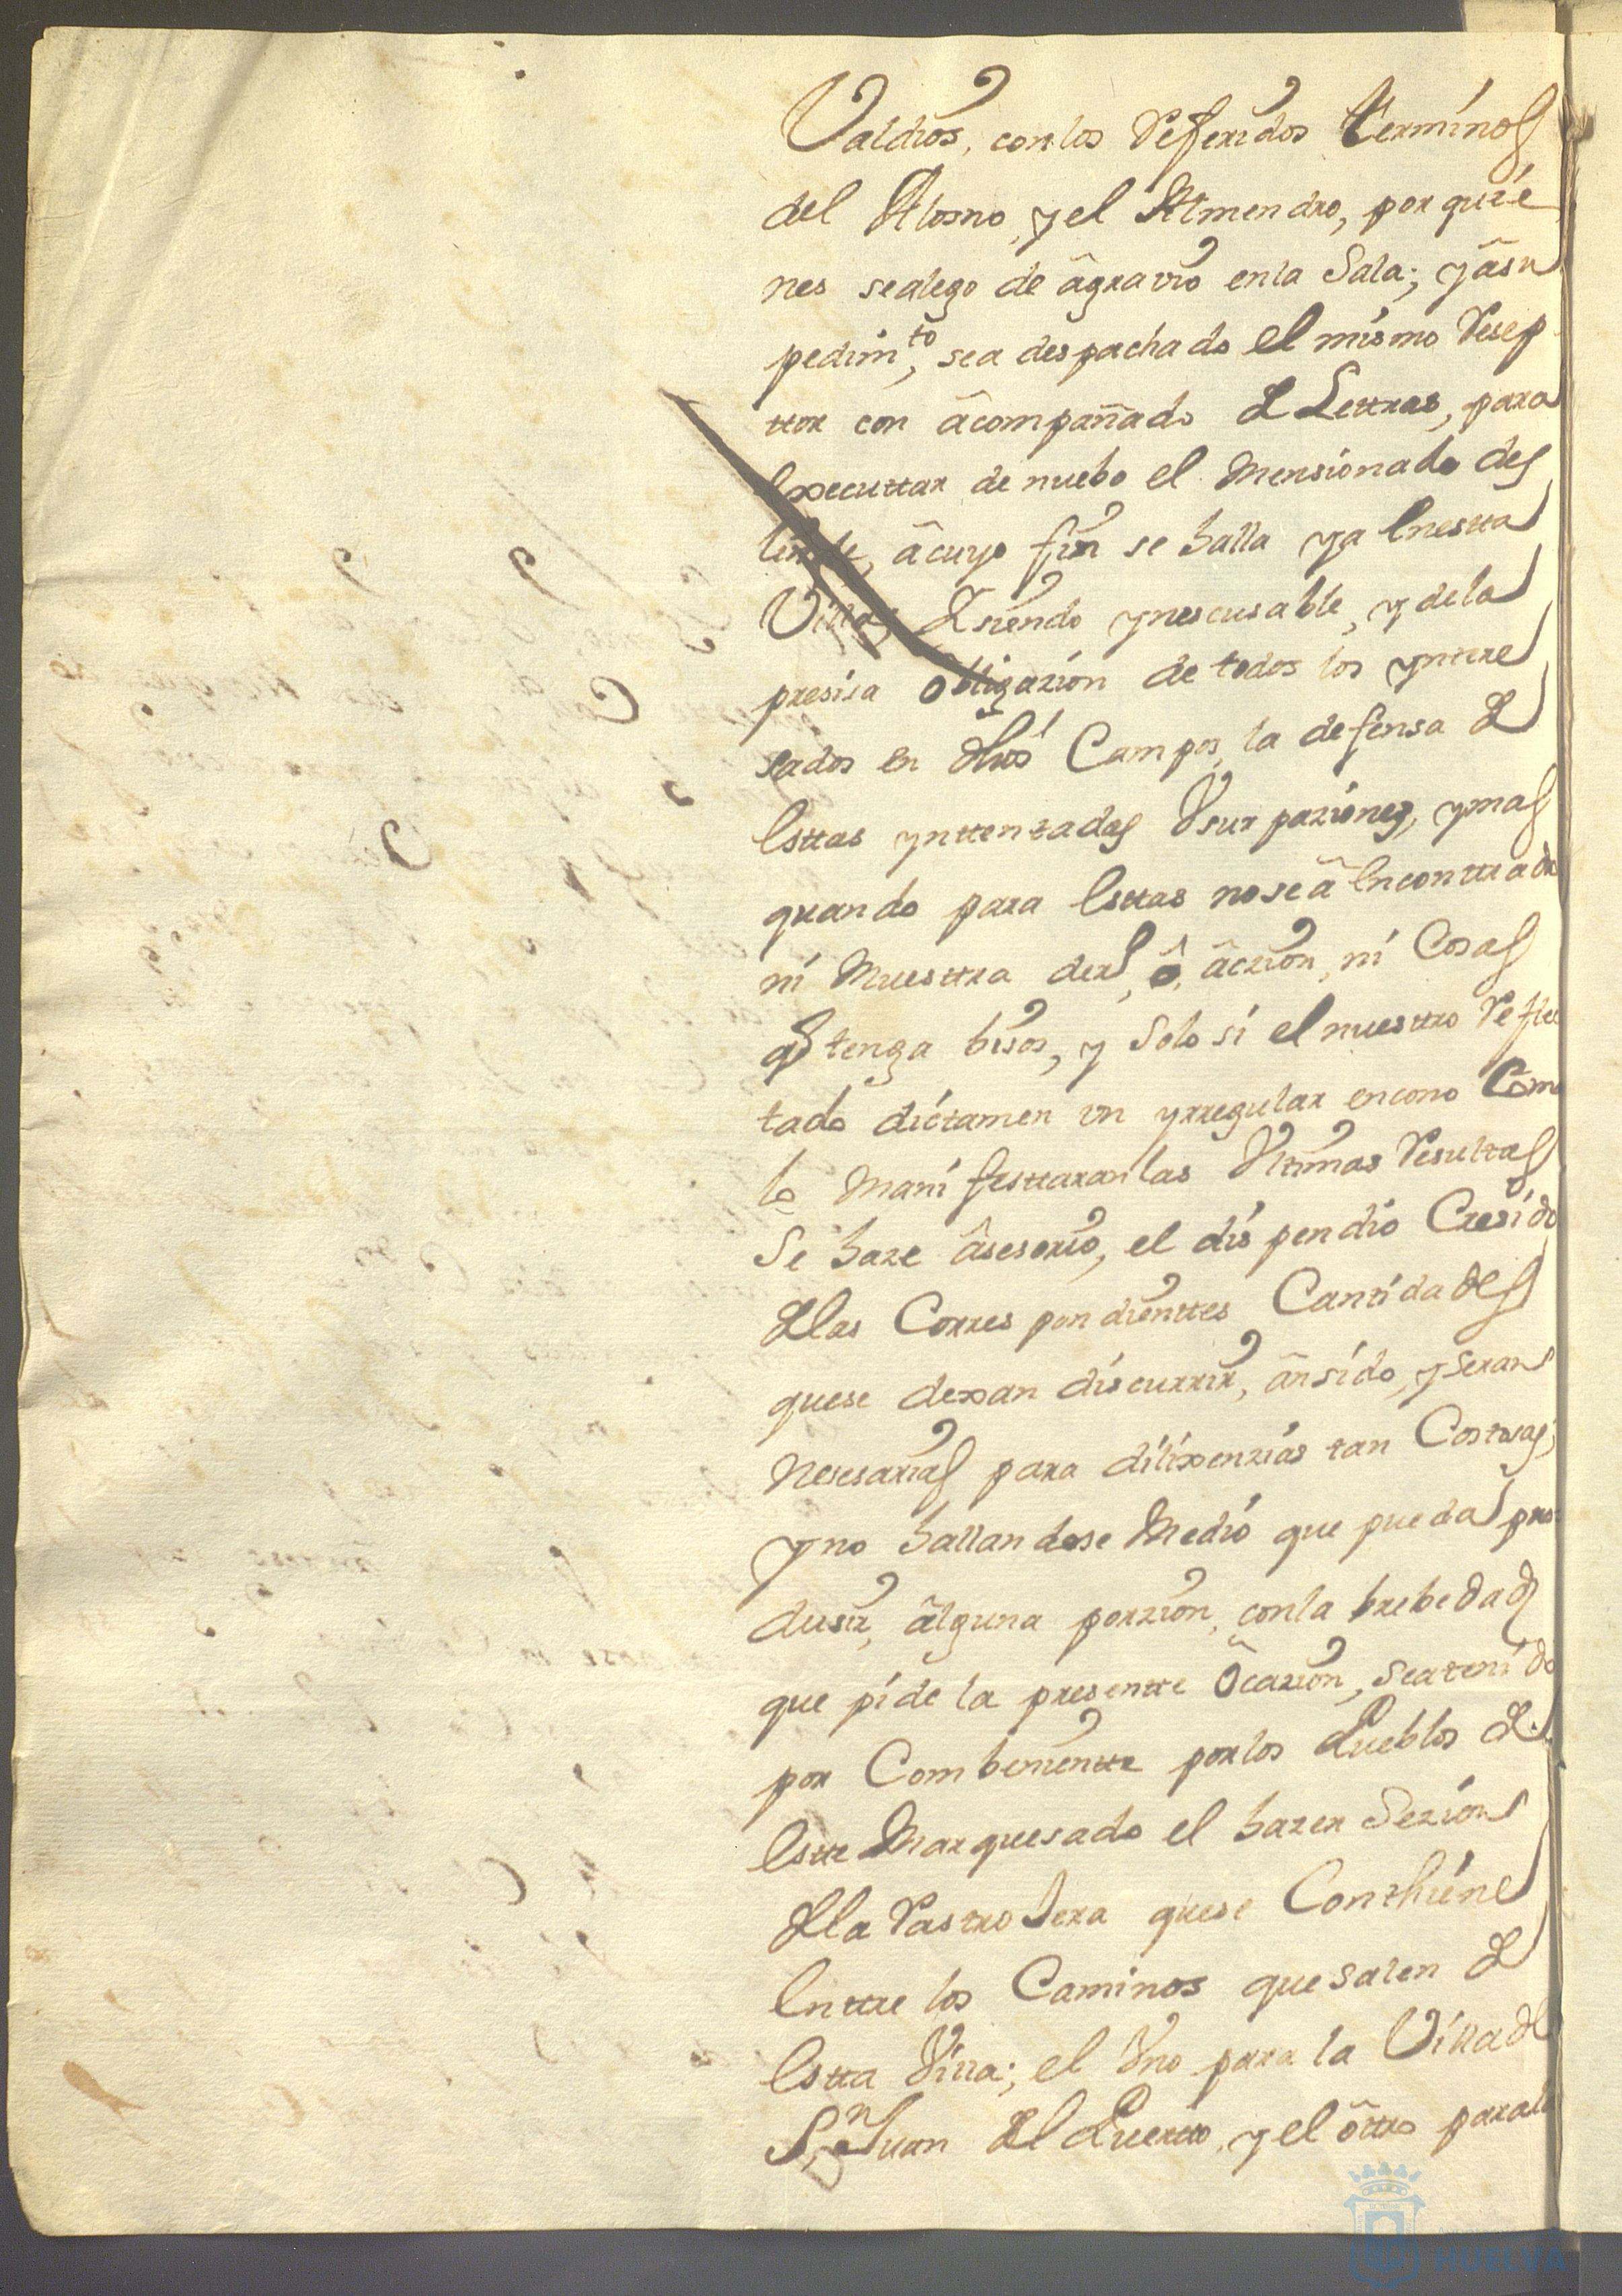 Valdios, con los Referidos terminos
del Alosno, y el Almendro, por quie
nes se alego de âgravio en la Sala; y âsu
pedimto, sea despachado el mismo Resep
ttor con âcompañado de Lettras, para
executtar de nuebo el Mensionado des
linde, âcuyo fin se halla ya enestta
Villa, Y siendo ynescusable, y dela
presisa obligazion de todos los yntere
sados en dhos Campos, la defensa de
esttas ynttentadas Vsurpaziones, y mas
quando para esttas no se â encontrado
ni Muesttra der, ô, âczion, ni Cosas
q tenga bisos, y Solo si el nuesttro Reflec
tado dictamen vn yrregular encono Como
lo Manifesttaran las Vltimas Resultas
Se haze âsesorio, el dispendio Cresido
de las Correspondienttes Cantidades
quese dexan discurrir, ânsido, y Seran
Nesesarias para dilixenzias tan Costosas;
y no hallandose Medio que pueda pro
dusir, âlguna porzion, conla brebedad
que pide la presentte Ôcazion, sea tenido
por Combenientte por los Pueblos de
estte Marquesado el hazer Sezion
de la Rastrojera quese Conthiene
enttre los Caminos que salen de
estta Villa; el Vno para la Villa de
Sn Juan del Puertto, y el ôttro parala
HUELVA